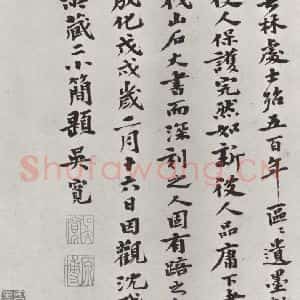 林處士殆五百年區區遺墨
後人保護完然如新後人品庸下
伐山石大書而深刻之人固有踣之
成化戊戌歲二月十六日因觀沈
藏二小簡題吳寬
原博
Shufawang.CN